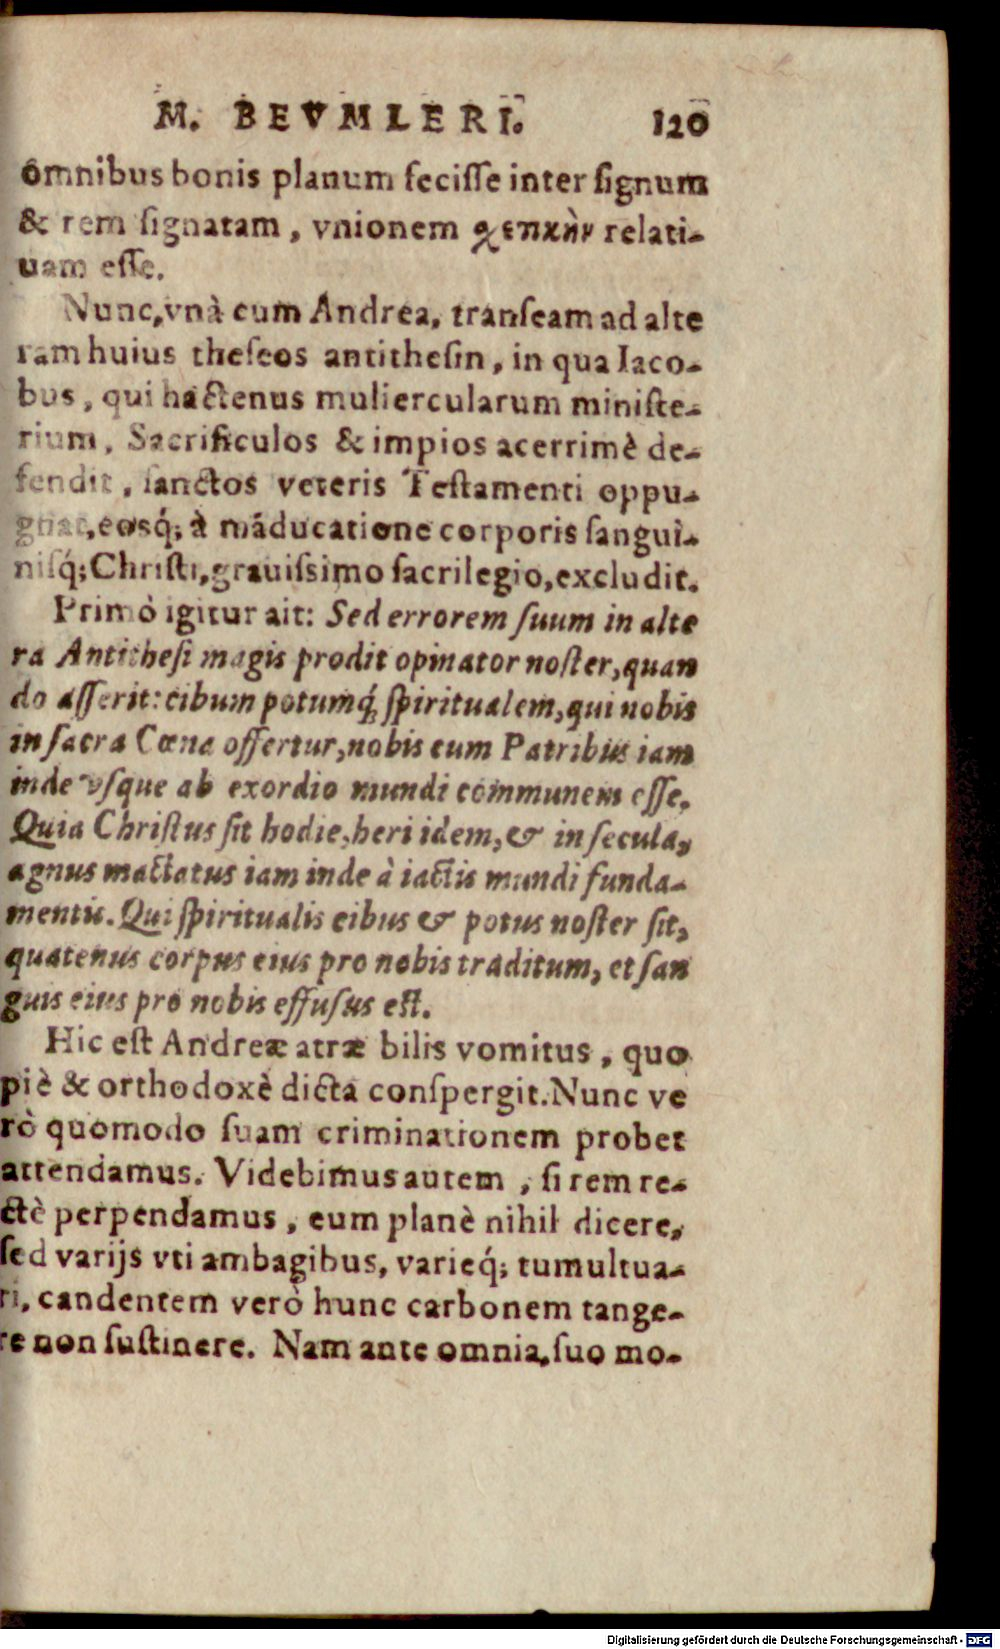 M. BEVMLERI. 120
omnibus bonis planum fecisse inter signum
& rem signatam, vnionem σχετικὴν relati-
uam esse.
Nunc, vnà cum Andrea, transeam ad alte
ram huius theseos antithesin, in qua Iaco-
bus, qui hactenus muliercularum ministe-
rium, Sacrificulos & impios acerrimè de-
fendit, sanctos veteris Testamenti oppu-
gnat, eosq́; à māducatione corporis sangui-
nisq́; Christi, grauissimo sacrilegio, excludit.
Primò igitur ait: Sed errorem suum in alte
ra Antithesi magis prodit opinator noster, quan
do asserit: cibum potumq́; spiritualem, qui nobis
in sacra Cœna offertur, nobis cum Patribus iam
inde vsque ab exordio mundi communem esse.
Quia Christus sit hodie, heri idem, & in secula,
agnus mactatus iam inde à iactis mundi funda-
mentis. Qui spiritualis cibus & potus noster sit,
quatenus corpus eius pro nobis traditum, et san
guis eius pro nobis effusus est.
Hic est Andreæ atræ bilis vomitus, quo
piè & orthodoxè dicta conspergit. Nunc ve
rò quomodo suam criminationem probet
attendamus. Videbimus autem, si rem re-
ctè perpendamus, eum planè nihil dicere,
sed varijs vti ambagibus, varieq́; tumultua-
ri, candentem verò hunc carbonem tange-
re non sustinere. Nam ante omnia, suo mo-
Digitalisierung gefördert durch die Deutsche Forschungsgemeinschaft - DFG